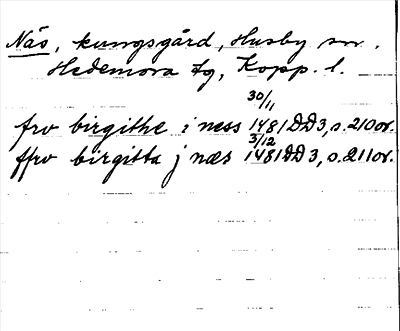 Näs, kungsgård, Husby sn.
Hedemora tg, Kopp. l.
30/11
frv birgithe i ness 1481 DD3, s. 210 or.
3/12
ffrv birgitta j næs 1481 DD3, s. 211 or.